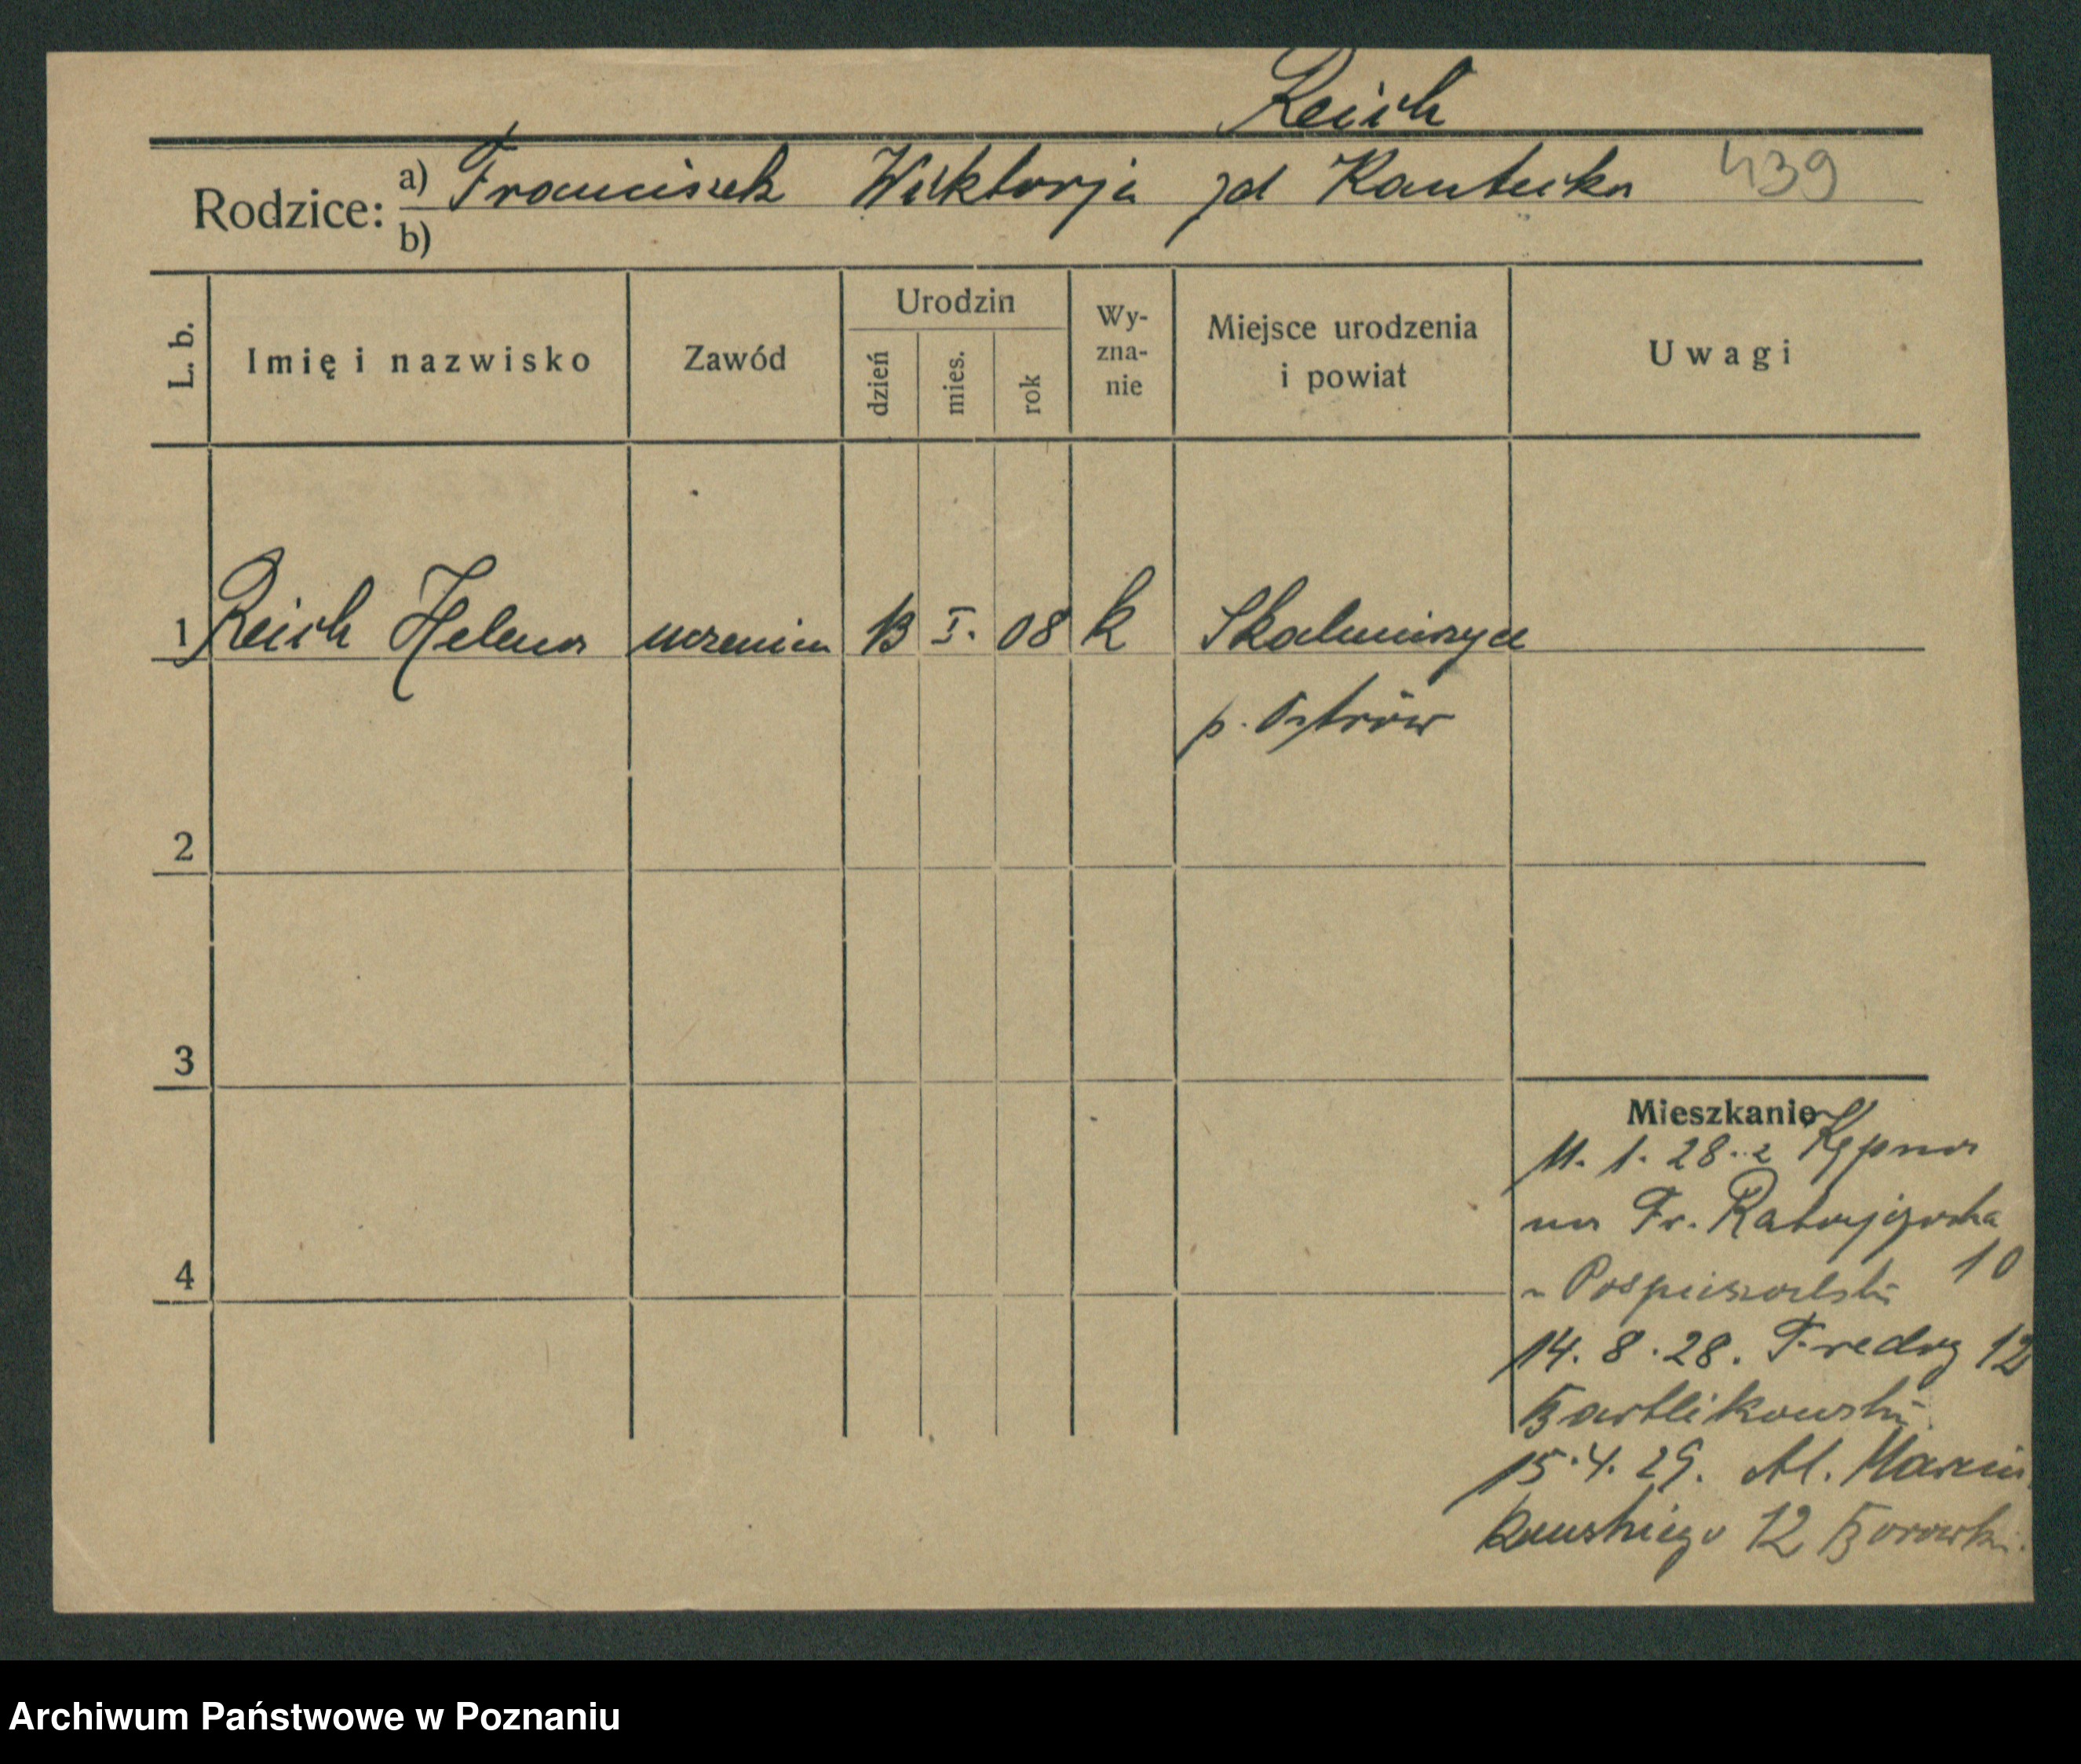 Reich
Rodzice: a) Franciszek Wiktorja zd Kantecka 439
b)
L. b. Imię i nazwisko Zawód Urodzin dzień mies. rok Wy-zna-nie Miejsce urodzenia i powiat Uwagi
1 Reich Helena uczenica 13 I. 08 k Skalmierzyce
p. Ostrów
2
3
Mieszkanie
11. 1. 28. z Kępna
na Fr. Ratajczaka
4
10
14. 8. 28. Fredry 12
Bartlikowski
15. 4. 29. Al. Marcin
kowskiego 12 Borowski.
Archiwum Państwowe w Poznaniu